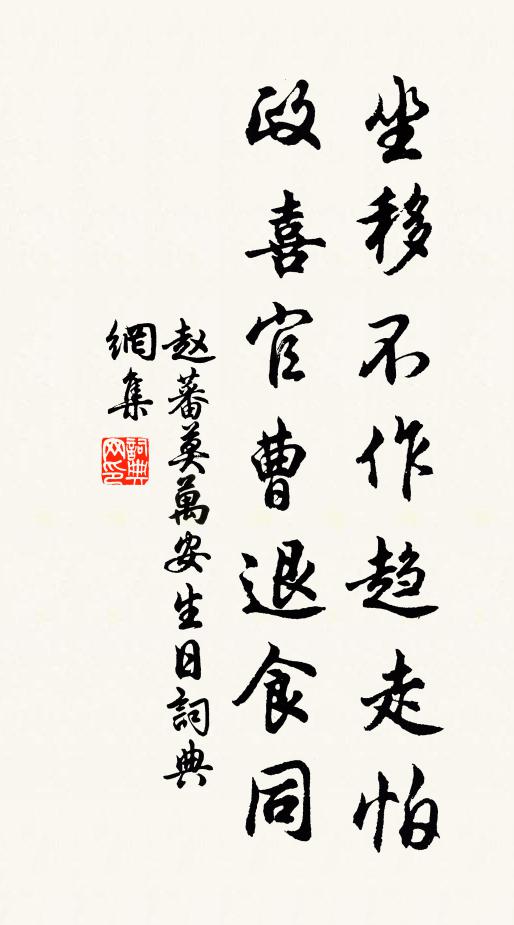 坐移不作趋走怕
政喜官曹退食同
赵蕃莫萬安生日詞典
網集
詞典
网印